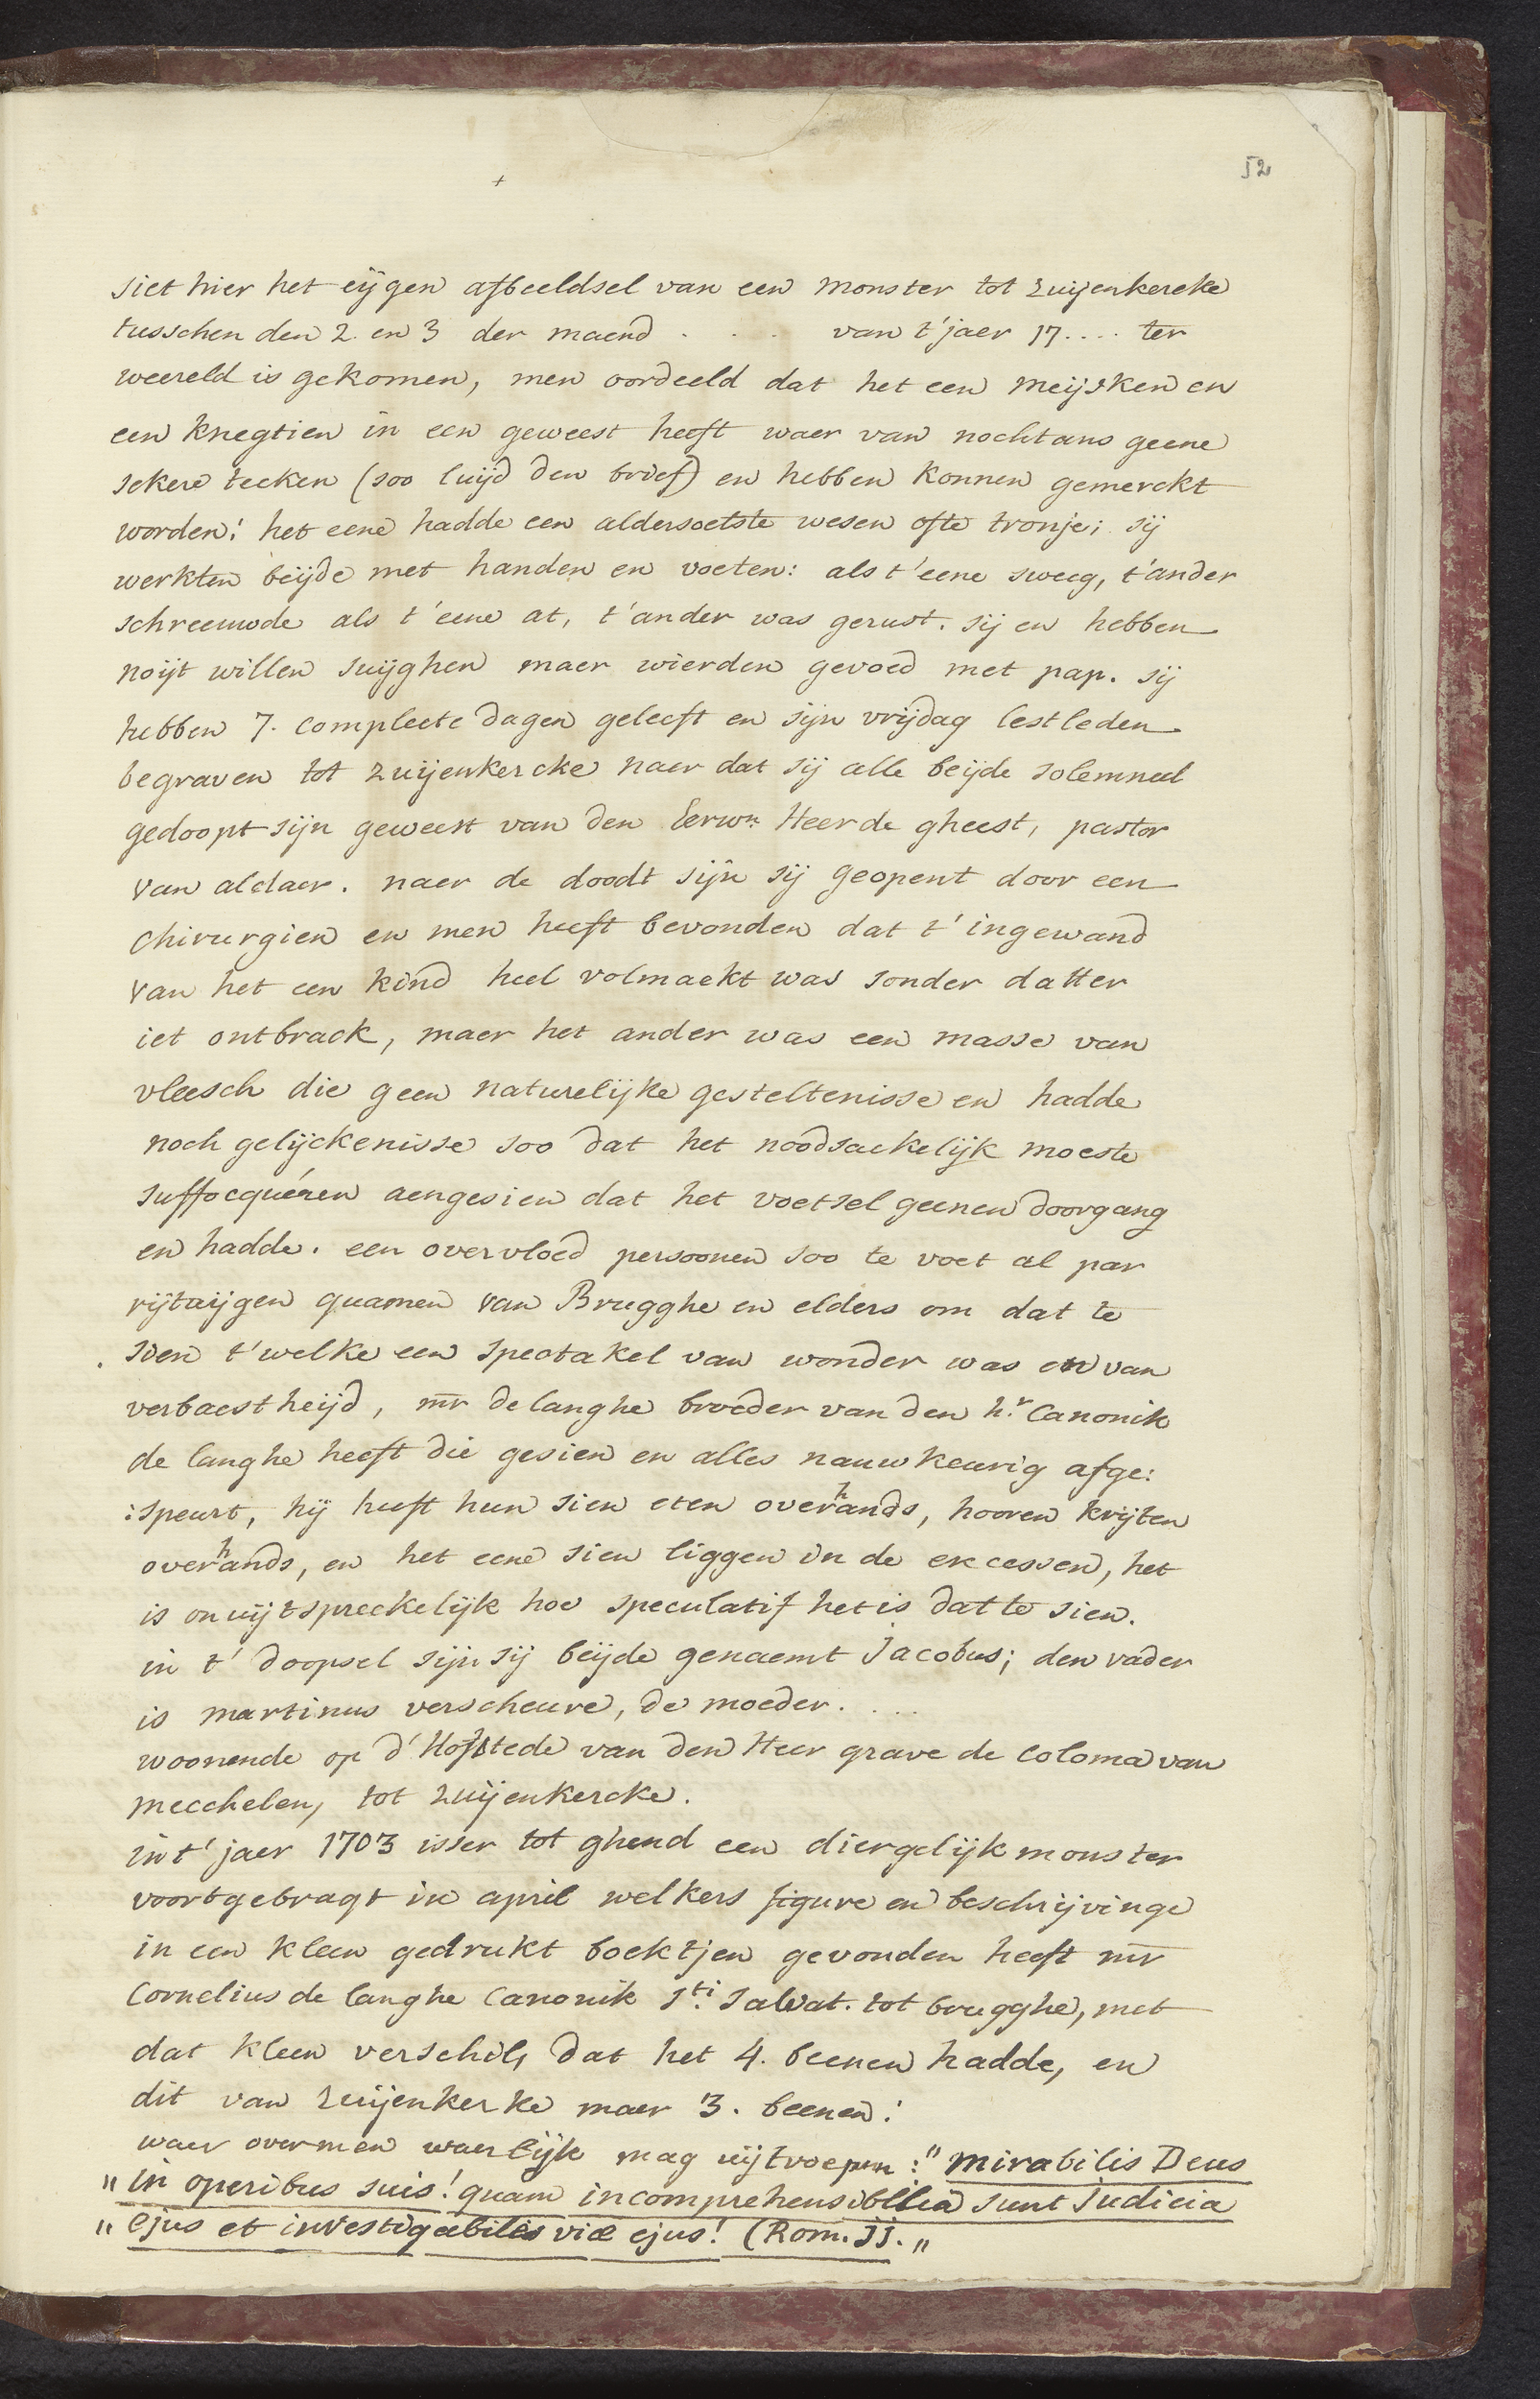 52
+
siet hier het eijgen afbeeldsel van een monster tot zuijenkercke
tusschen den 2. en 3 der maend . . . van t'jaer 17.... ter
weereld is gekomen, men oordeeld dat het een meijsken en
een knegtien in een geweest heeft waer van nochtans geene
sekere teeken (soo luijd den brief) en hebben konnen gemerckt
worden: het eene hadde een aldersoetste wesen ofte tronje; sij
werkten beijde met handen en voeten: als t'eene sweeg, t'ander
schreeuwde als t'eene at, t'ander was gerust. sij en hebben
noijt willen suijghen maer wierden gevoed met pap. sij
hebben 7. compleete dagen geleeft en sijn vrijdag lestleden
begraven tot zuijenkercke naer dat sij alle beijde solemneel
gedoopt sijn geweest van den Eerwn Heer de gheest, pastor
van aldaer. naer de doodt sijn sij geopent door een
chirurgien en men heeft bevonden dat t'ingewand
van het een kind heel volmaekt was sonder datter
iet ontbrack, maer het ander was een masse van
vleesch die geen naturelijke gesteltenisse en hadde
noch gelijckenisse soo dat het noodsaekelijk moeste
suffocquéren aengesien dat het voetsel geenen doorgang
en hadde. een overvloed persoonen soo te voet al par
rijtuijgen quamen van Brugghe en elders om dat te
sien t'welke een spectakel van wonder was en van
verbaestheijd, mr de langhe broeder van den h.r Canonik
de langhe heeft die gesien en alles nauwkeurig afge:
:speurt, hij heeft hun sien eten overhands, hooren krijten
overhands, en het eene sien liggen in de excessen, het
is onuijtspreekelijk hoe speculatif het is dat te sien.
in t'doopsel sijn sij beijde genaemt Jacobus; den vader
is martinus verscheure, de moeder. ...
woonende op d'Hofstede van den Heer grave de Coloma van
mecchelen, tot zuijenkercke.
in t'jaer 1703 isser tot ghend een diergelijk monster
voortgebragt in april welkers figure en beschrijvinge
in een kleen gedrukt boektjen gevonden heeft mr
Cornelius de langhe Canonik S.ti Salvat. tot brugghe, met
dat kleen verschil, dat het 4. beenen hadde, en
dit van zuijenkerke maer 3. beenen:
waer over men waerlijk mag uijtroepen: " mirabilis Deus
" in operibus suis! quam incomprehensibilia sunt Judicia
" ejus et investigabiles viæ ejus! (Rom. JJ. "